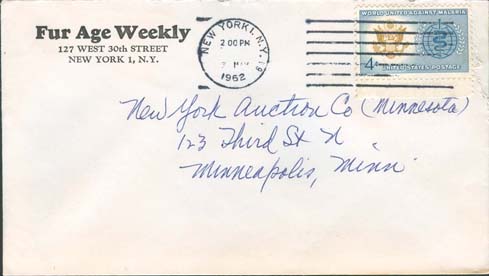 Fur Age Weekly
127 WEST 30th STREET
NEW YORK 1, N.Y.
NEW YORK 1, N.Y.
2 00 PM
1962
WORLD UNITED AGAINST MALARIA
4¢
UNITED STATES POSTAGE
New York Auction Co (Minnesota)
123 Third St N
Minneapolis, Minn